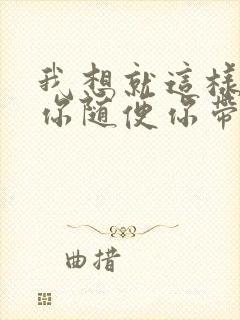 我想就這樣
你隨便你帶
曲措